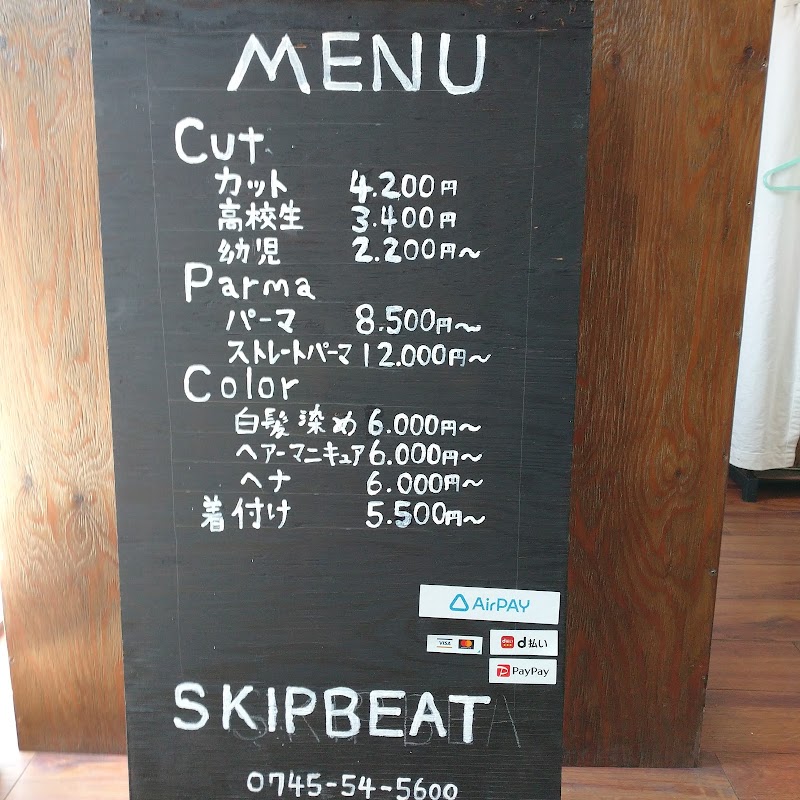 MENU
Cut
カット 4.200円
高校生 3.400円
幼児 2.200円〜
Parma
パーマ 8.500円〜
ストレートパーマ 12.000円〜
Color
白髪染め 6.000円〜
ヘアーマニキュア 6.000円〜
ヘナ 6.000円〜
着付け 5.500円〜
AirPAY
VISA d払い
PayPay
SKIPBEAT
0745-54-5600